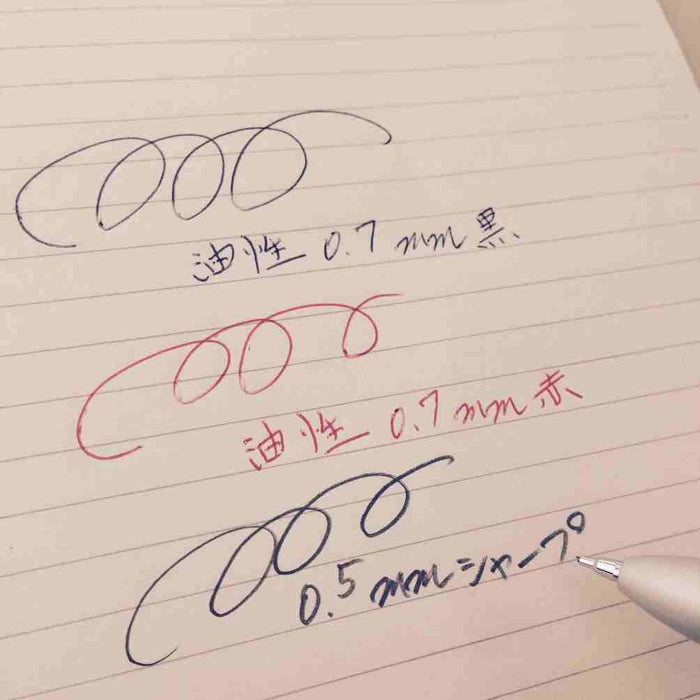 油性 0.7mm黒
油性 0.7mm赤
0.5mmシャープ